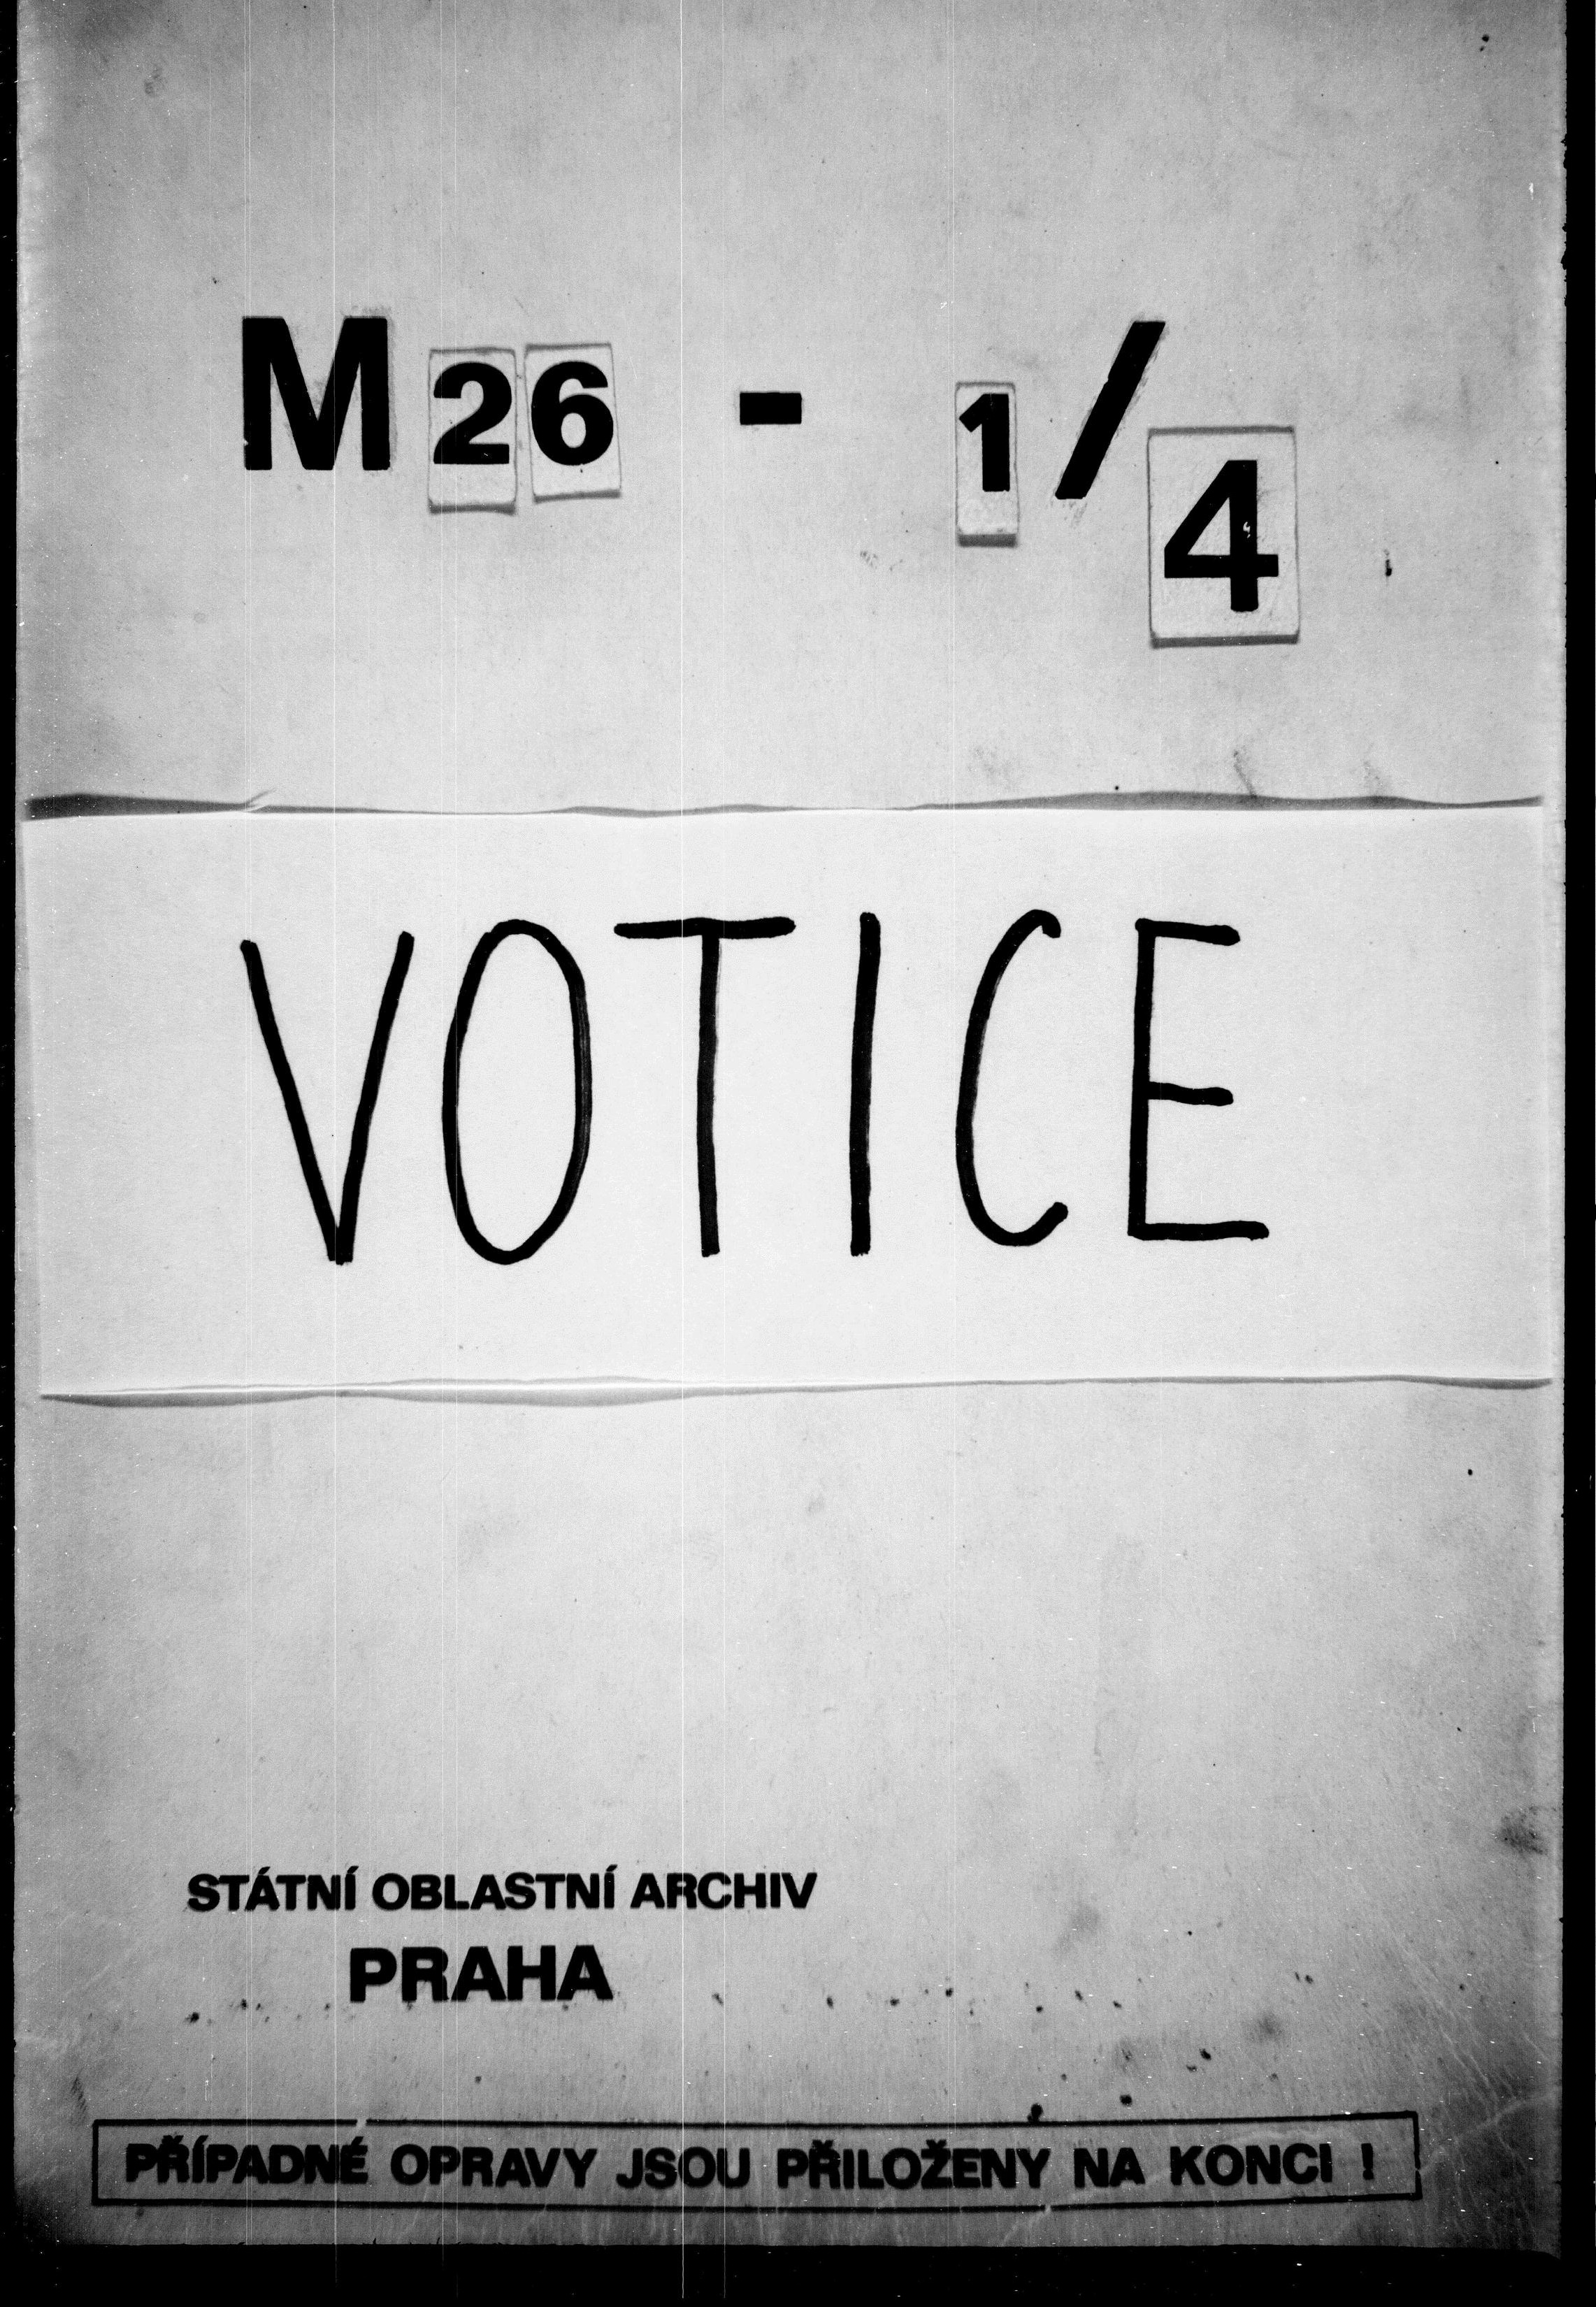 M 26 - 1/4
VOTICE
STÁTNÍ OBLASTNÍ ARCHIV
PRAHA
PŘÍPADNÉ OPRAVY JSOU PŘILOŽENY NA KONCI !